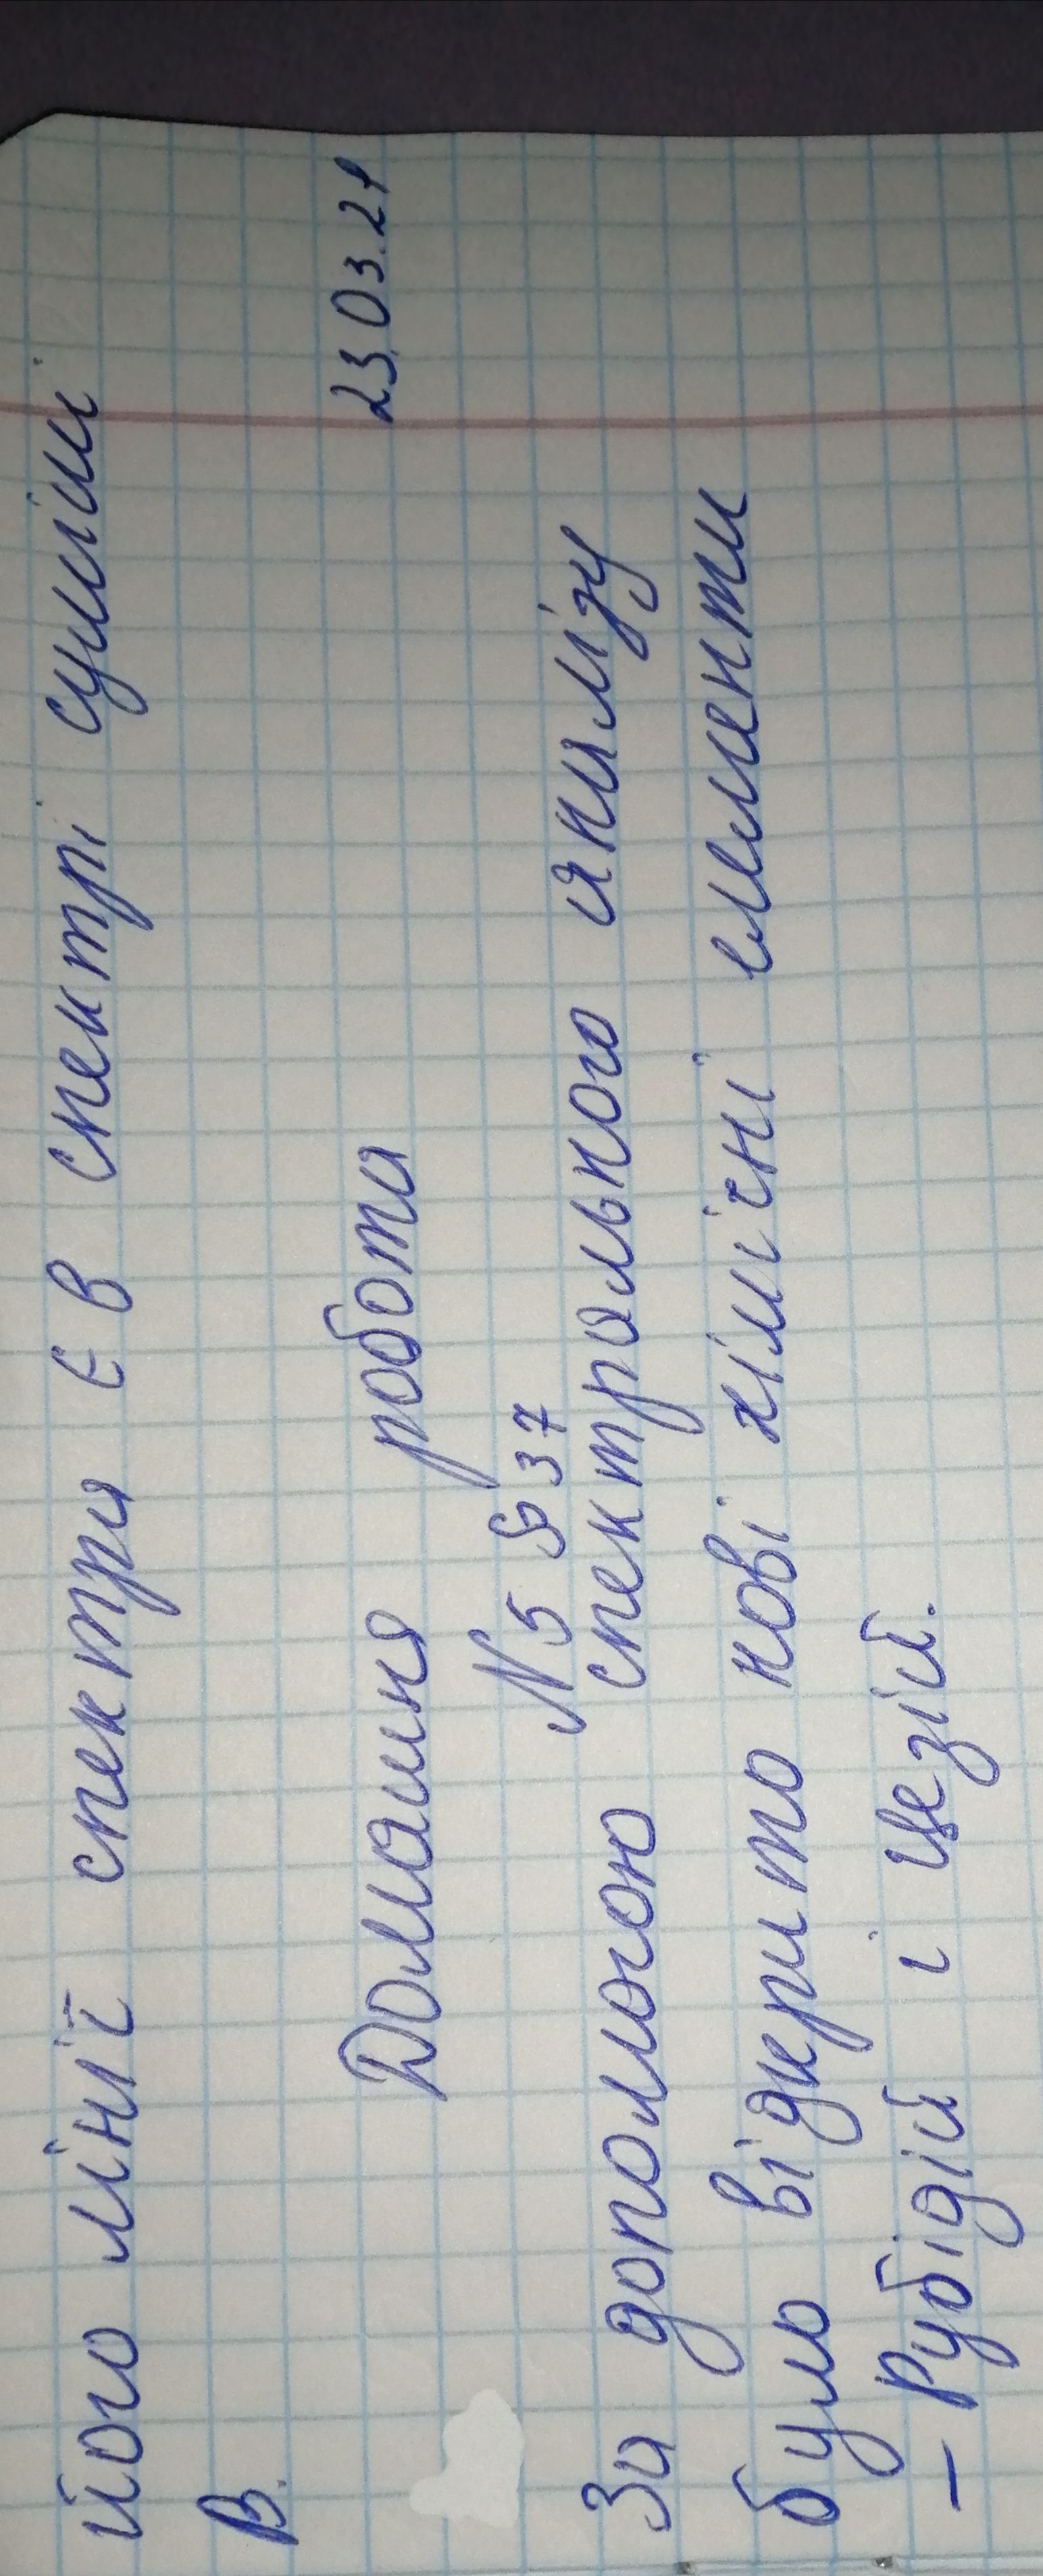 його лінії спектра є в спектрі суміші
В.
23.03.21
Домашня робота
N5 §37
За допомогою спектрального аналізу
було відкрито нові хімічні елементи
– Рубідій і Цезій.